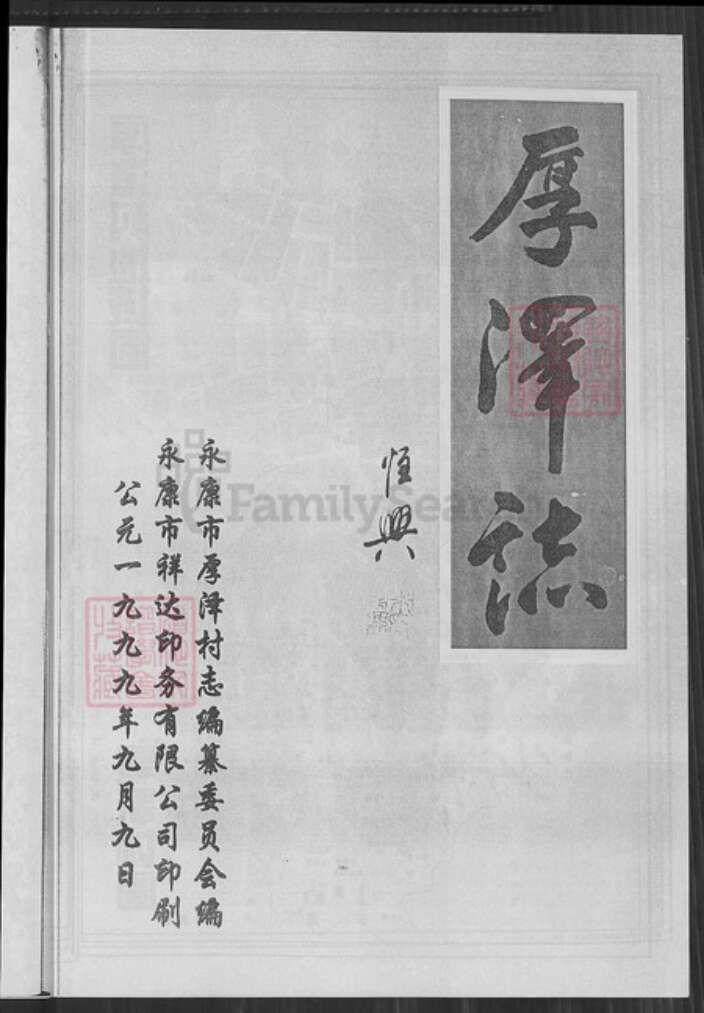 厚澤誌
恒興
永康市厚泽村志编纂委员会编
永康市祥达印务有限公司印刷
公元一九九九年九月九日
FamilySearch